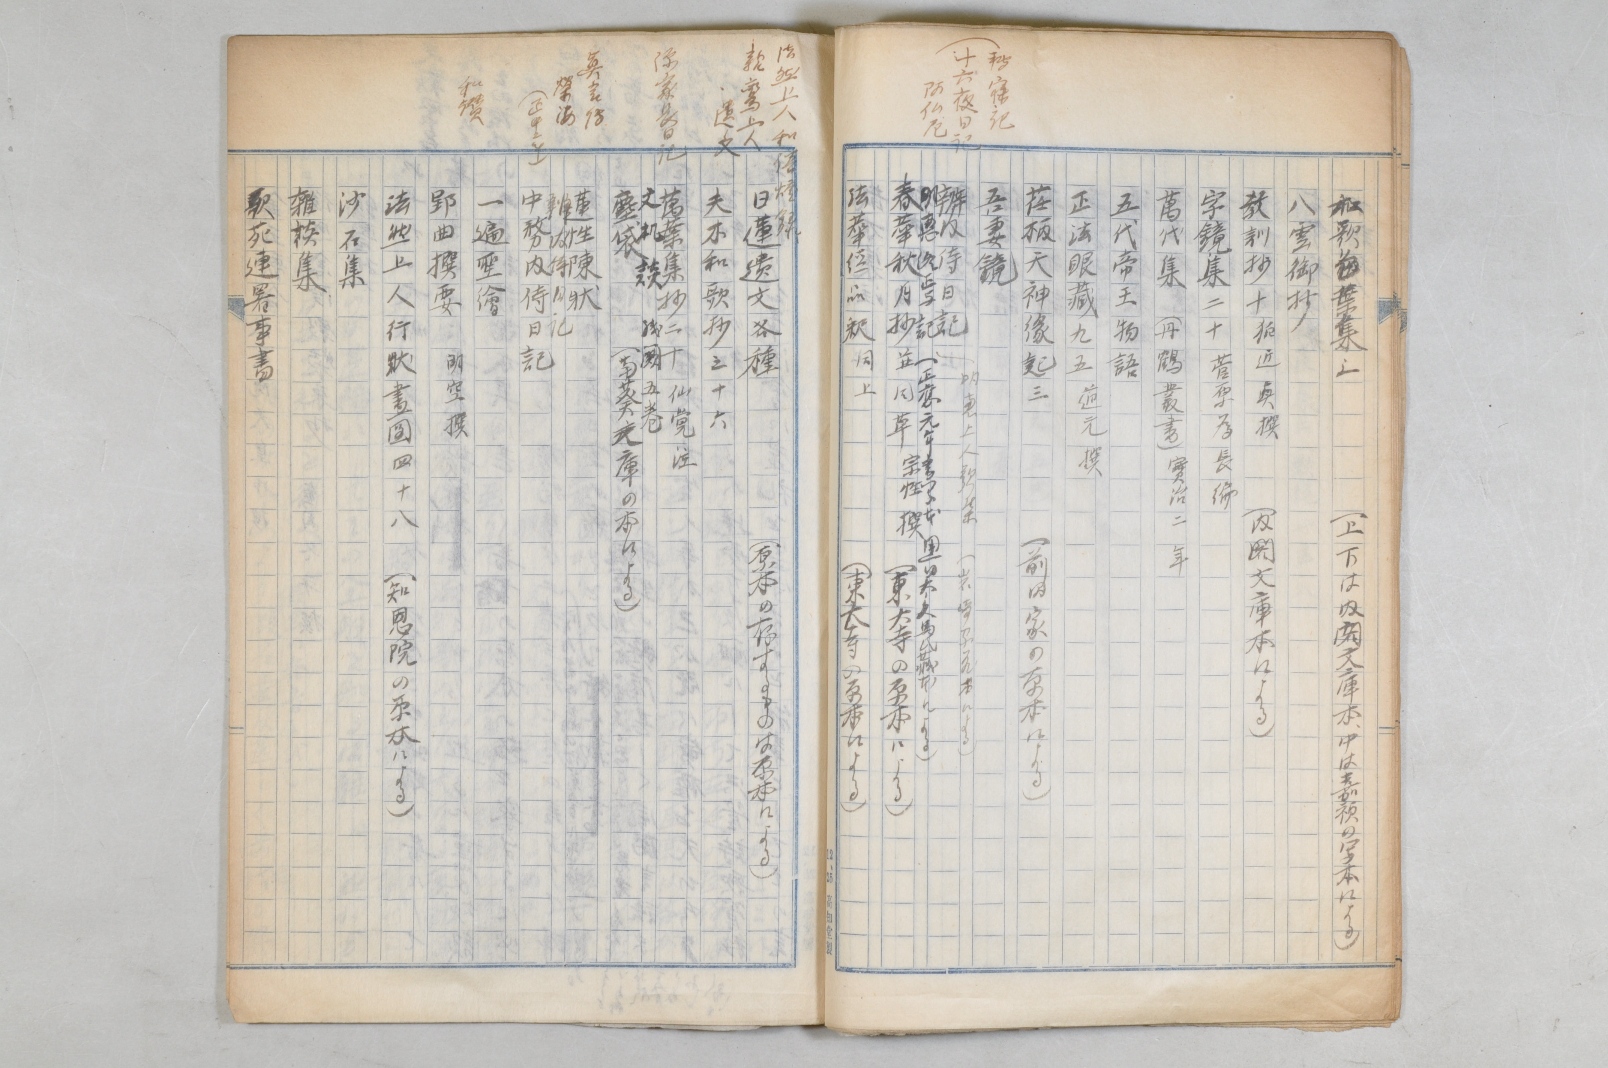 和歌色葉集三 (上下は内閣文庫本、中は嘉禎の写本による)
八雲御抄
教訓抄十 狛近真撰 (内閣文庫本による)
字鏡集二十 菅原為長編
萬代集 (丹鶴叢書) 寳治二年
五代帝王物語
正法眼藏九五 道元撰
荏柄天神縁起三 (前田家の原本による)
吾妻鏡
辨内侍日記
明恵上人歌集
春華秋月抄並同草 宗性撰 (東大寺の原本による)
法華経品釈 同上 (東大寺の原本による)
十六夜日記
阿仏尼
日蓮遺文各種 (原本の存するものは原本による)
夫木和歌抄三十六
萬葉集抄二十 仙覚註
文机談 五巻
塵袋 (南葵文庫の本による)
蓮性陳状
辨内侍日記
中務内侍日記
一遍聖繪
郢曲撰要 明空撰
法然上人行状畫圖四十八 (知恩院の原本による)
沙石集
雑談集
歌苑連署事書
法然上人和語燈録
親鸞上人
遺文
和讃